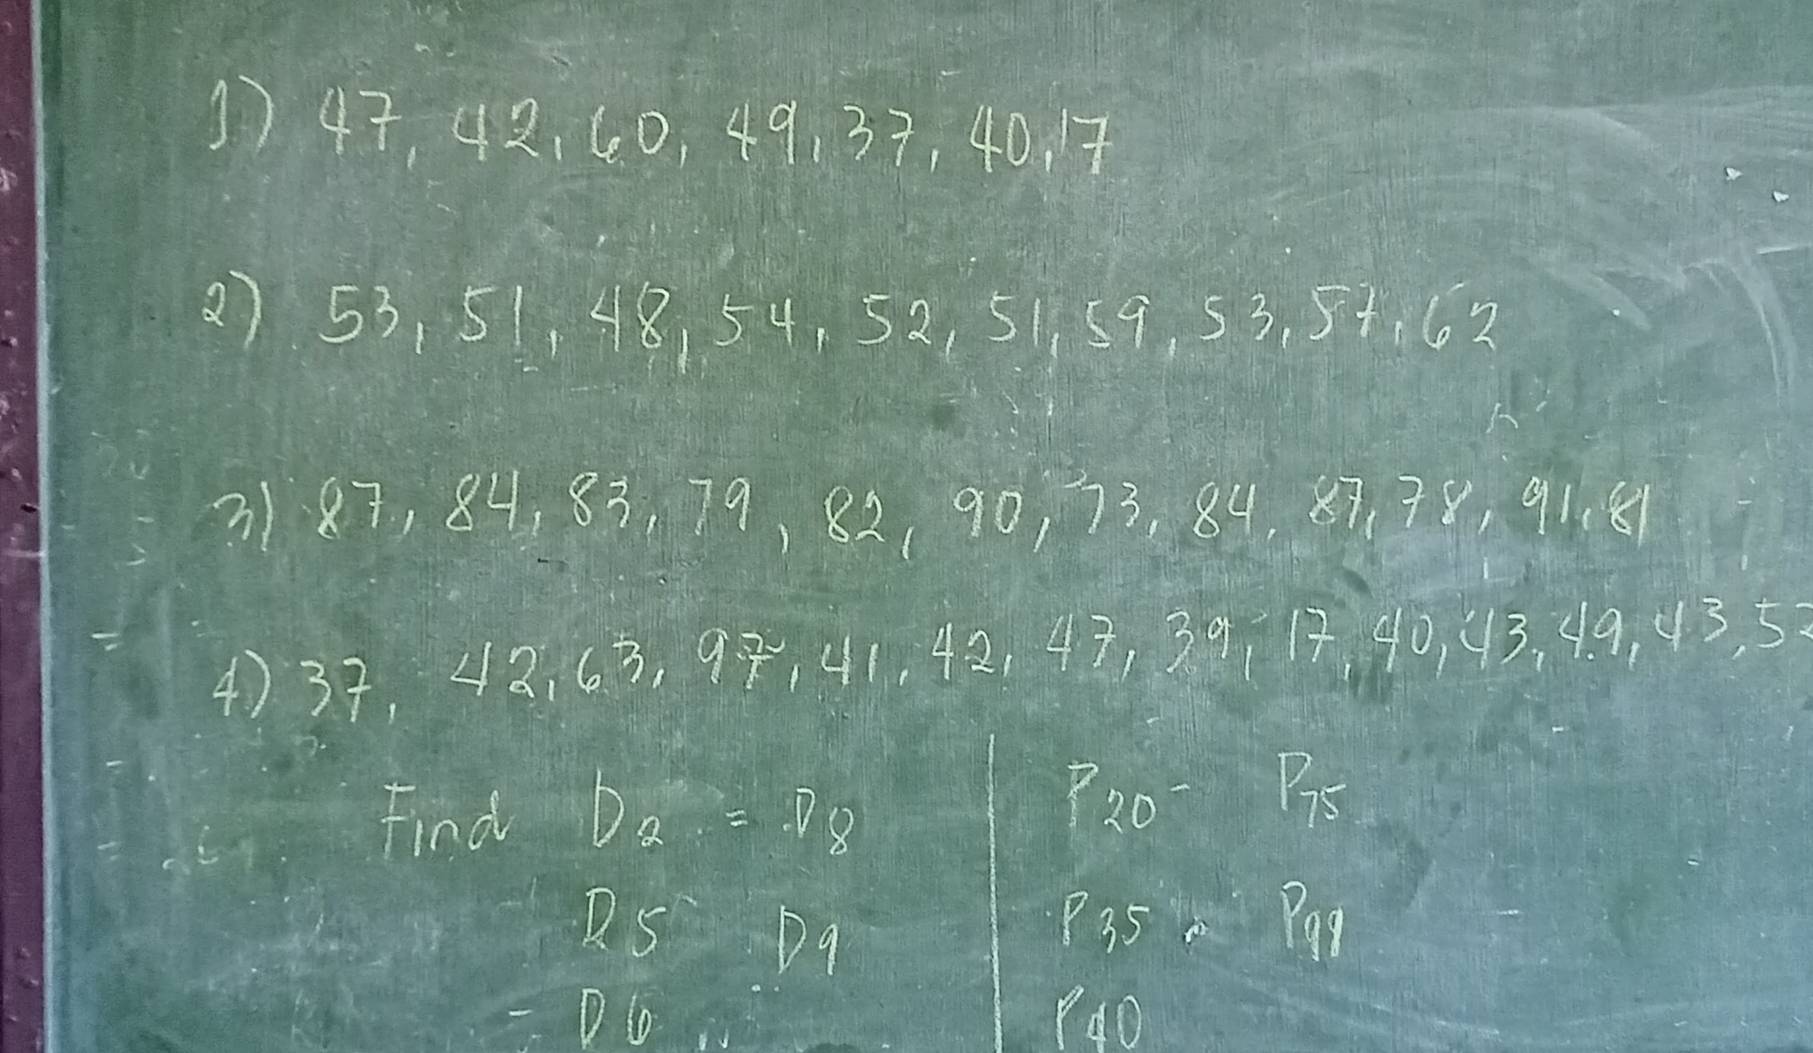 1) 47, 42, 60, 49, 37, 40, 17
2) 53, 51, 48, 54, 52, 51, 59, 53, 57, 62
3) 87, 84, 83, 79, 82, 90, 73, 84, 87, 78, 91, 81
4) 37, 42, 63, 97, 41, 42, 47, 39, 17, 40, 43, 49, 43, 52
Find D2 = D8 P20 - P75
D5 D9 P35 P99
D6 P40